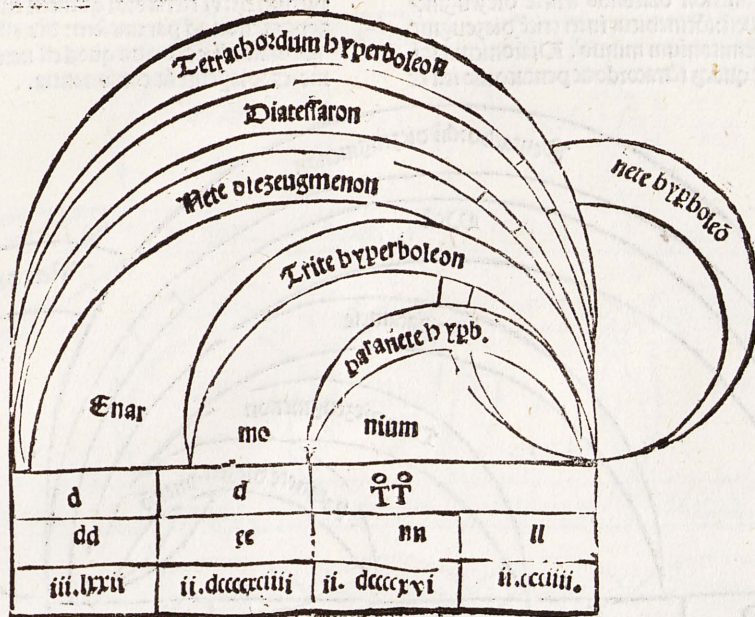 Tetrachordum hyperboleon
Diatessaron
Nete diezeugmenon
nete hyꝑboleō
Trite hyperboleon
paranete hyꝑb.
Enar mo nium
d d
dd nn ll
iii.lxxii ii.dccccxciiii ii. dccccxvi ii.ccciiii.